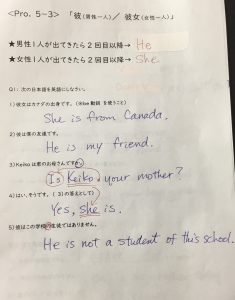 <Pro. 5-3> 「彼(男性一人)/ 彼女(女性一人)」
★男性1人が出てきたら2回目以降→ He
★女性1人が出てきたら2回目以降→ She
Q1: 次の日本語を英語にしなさい。
1)彼女はカナダの出身です。(※be動詞 を使うこと)
She is from Canada.
2)彼は僕の友達です。
He is my friend.
3)Keikoは君の母さんですか。
Is Keiko your mother?
4)はい、そうです。(3)の答えとして)
Yes, she is.
5)彼はこの学校の生徒ではありません。
He is not a student of this school.